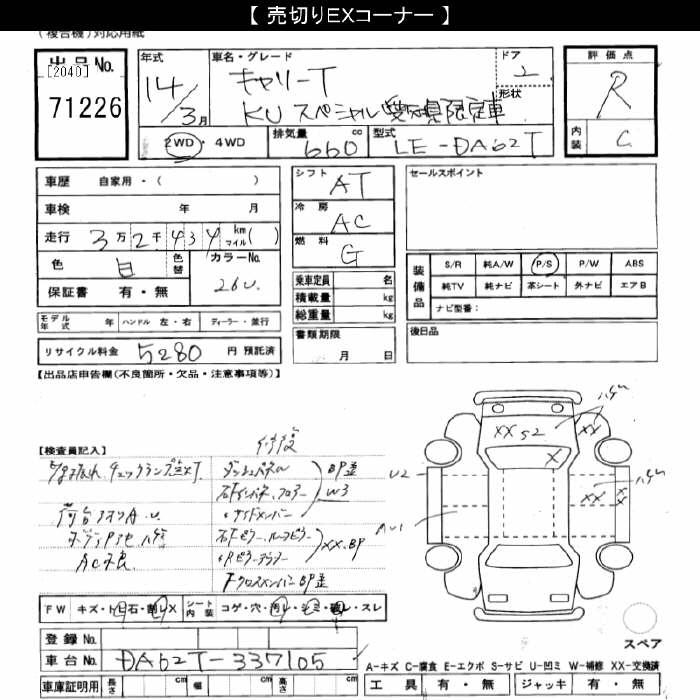 【 売切りEXコーナー 】
(複合機)対応用紙
出品No.
[2040]
71226
年式
14/3月
車名・グレード
キャリーT
KU スペシャル愛知県限定車
ドア
2
形状
評価点
R
内装
C
2WD ・ 4WD
排気量 660 cc
型式 LE-DA62T
車歴 自家用・( )
車検 年 月
走行 3万2千434 km マイル( )
色 白
色替
カラーNo. 26U
保証書 有・無
シフト AT
冷房 AC
燃料 G
乗車定員 名
積載量 kg
総重量 kg
書類期限
月 日
セールスポイント
装備品
S/R 純A/W P/S P/W ABS
純TV 純ナビ 革シート 外ナビ エアB
ナビ型番:
後日品
モデル年式 年 ハンドル 左・右 ディーラー・並行
リサイクル料金 5280 円 預託済
【出品店申告欄(不良箇所・欠品・注意事項等)】
【検査員記入】
修復
チェックランプ点灯
ダッシュパネル
BP歪
W3
荷台 A.U
サイドメンバー
ボディ
AC不良
XX.BP
クロスメンバーBP歪
XX S2
ハゲ
XX
X
U2
AU1
XX
ハゲ
XX
FW キズ・トビ石・割レX
シート内装 コゲ・穴・汚レ・シミ・破レ・スレ
登録No.
車台No. DA62T-337105
車庫証明用 長さ cm 幅 cm 高さ cm
スペア
A-キズ C-腐食 E-エクボ S-サビ U-凹ミ W-補修 XX-交換済
工具 有・無 ジャッキ 有・無